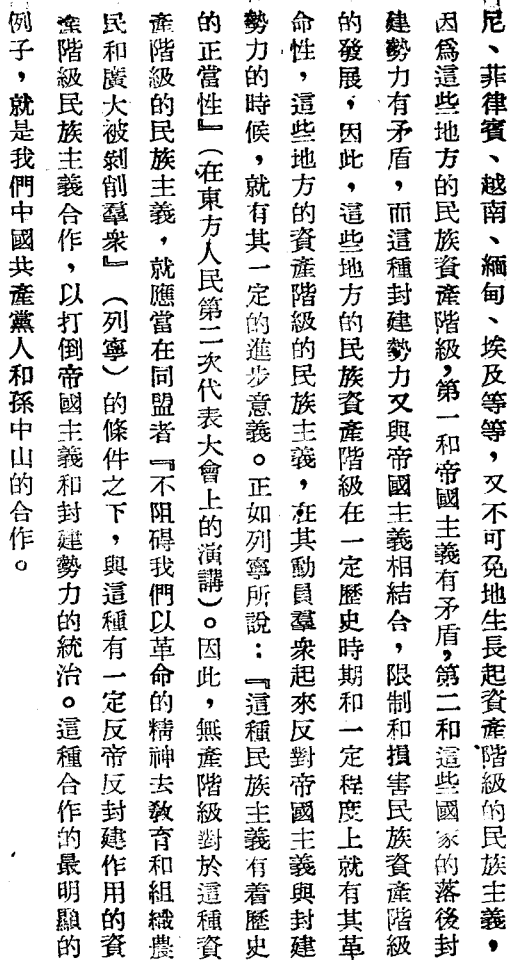 尼、菲律賓、越南、緬甸、埃及等等，又不可免地生長起資產階級的民族主義，
因爲這些地方的民族資產階級，第一和帝國主義有矛盾，第二和這些國家的落後封
建勢力有矛盾，而這種封建勢力又與帝國主義相結合，限制和損害民族資產階級
的發展，因此，這些地方的民族資產階級在一定歷史時期和一定程度上就有其革
命性，這些地方的資產階級的民族主義，在其動員羣衆起來反對帝國主義與封建
勢力的時候，就有其一定的進步意義。正如列寧所說：『這種民族主義有着歷史
的正當性』（在東方人民第二次代表大會上的演講）。因此，無產階級對於這種資
產階級的民族主義，就應當在同盟者『不阻碍我們以革命的精神去敎育和組織農
民和廣大被剝削羣衆』（列寧）的條件之下，與這種有一定反帝反封建作用的資
產階級民族主義合作，以打倒帝國主義和封建勢力的統治。這種合作的最明顯的
例子，就是我們中國共產黨人和孫中山的合作。